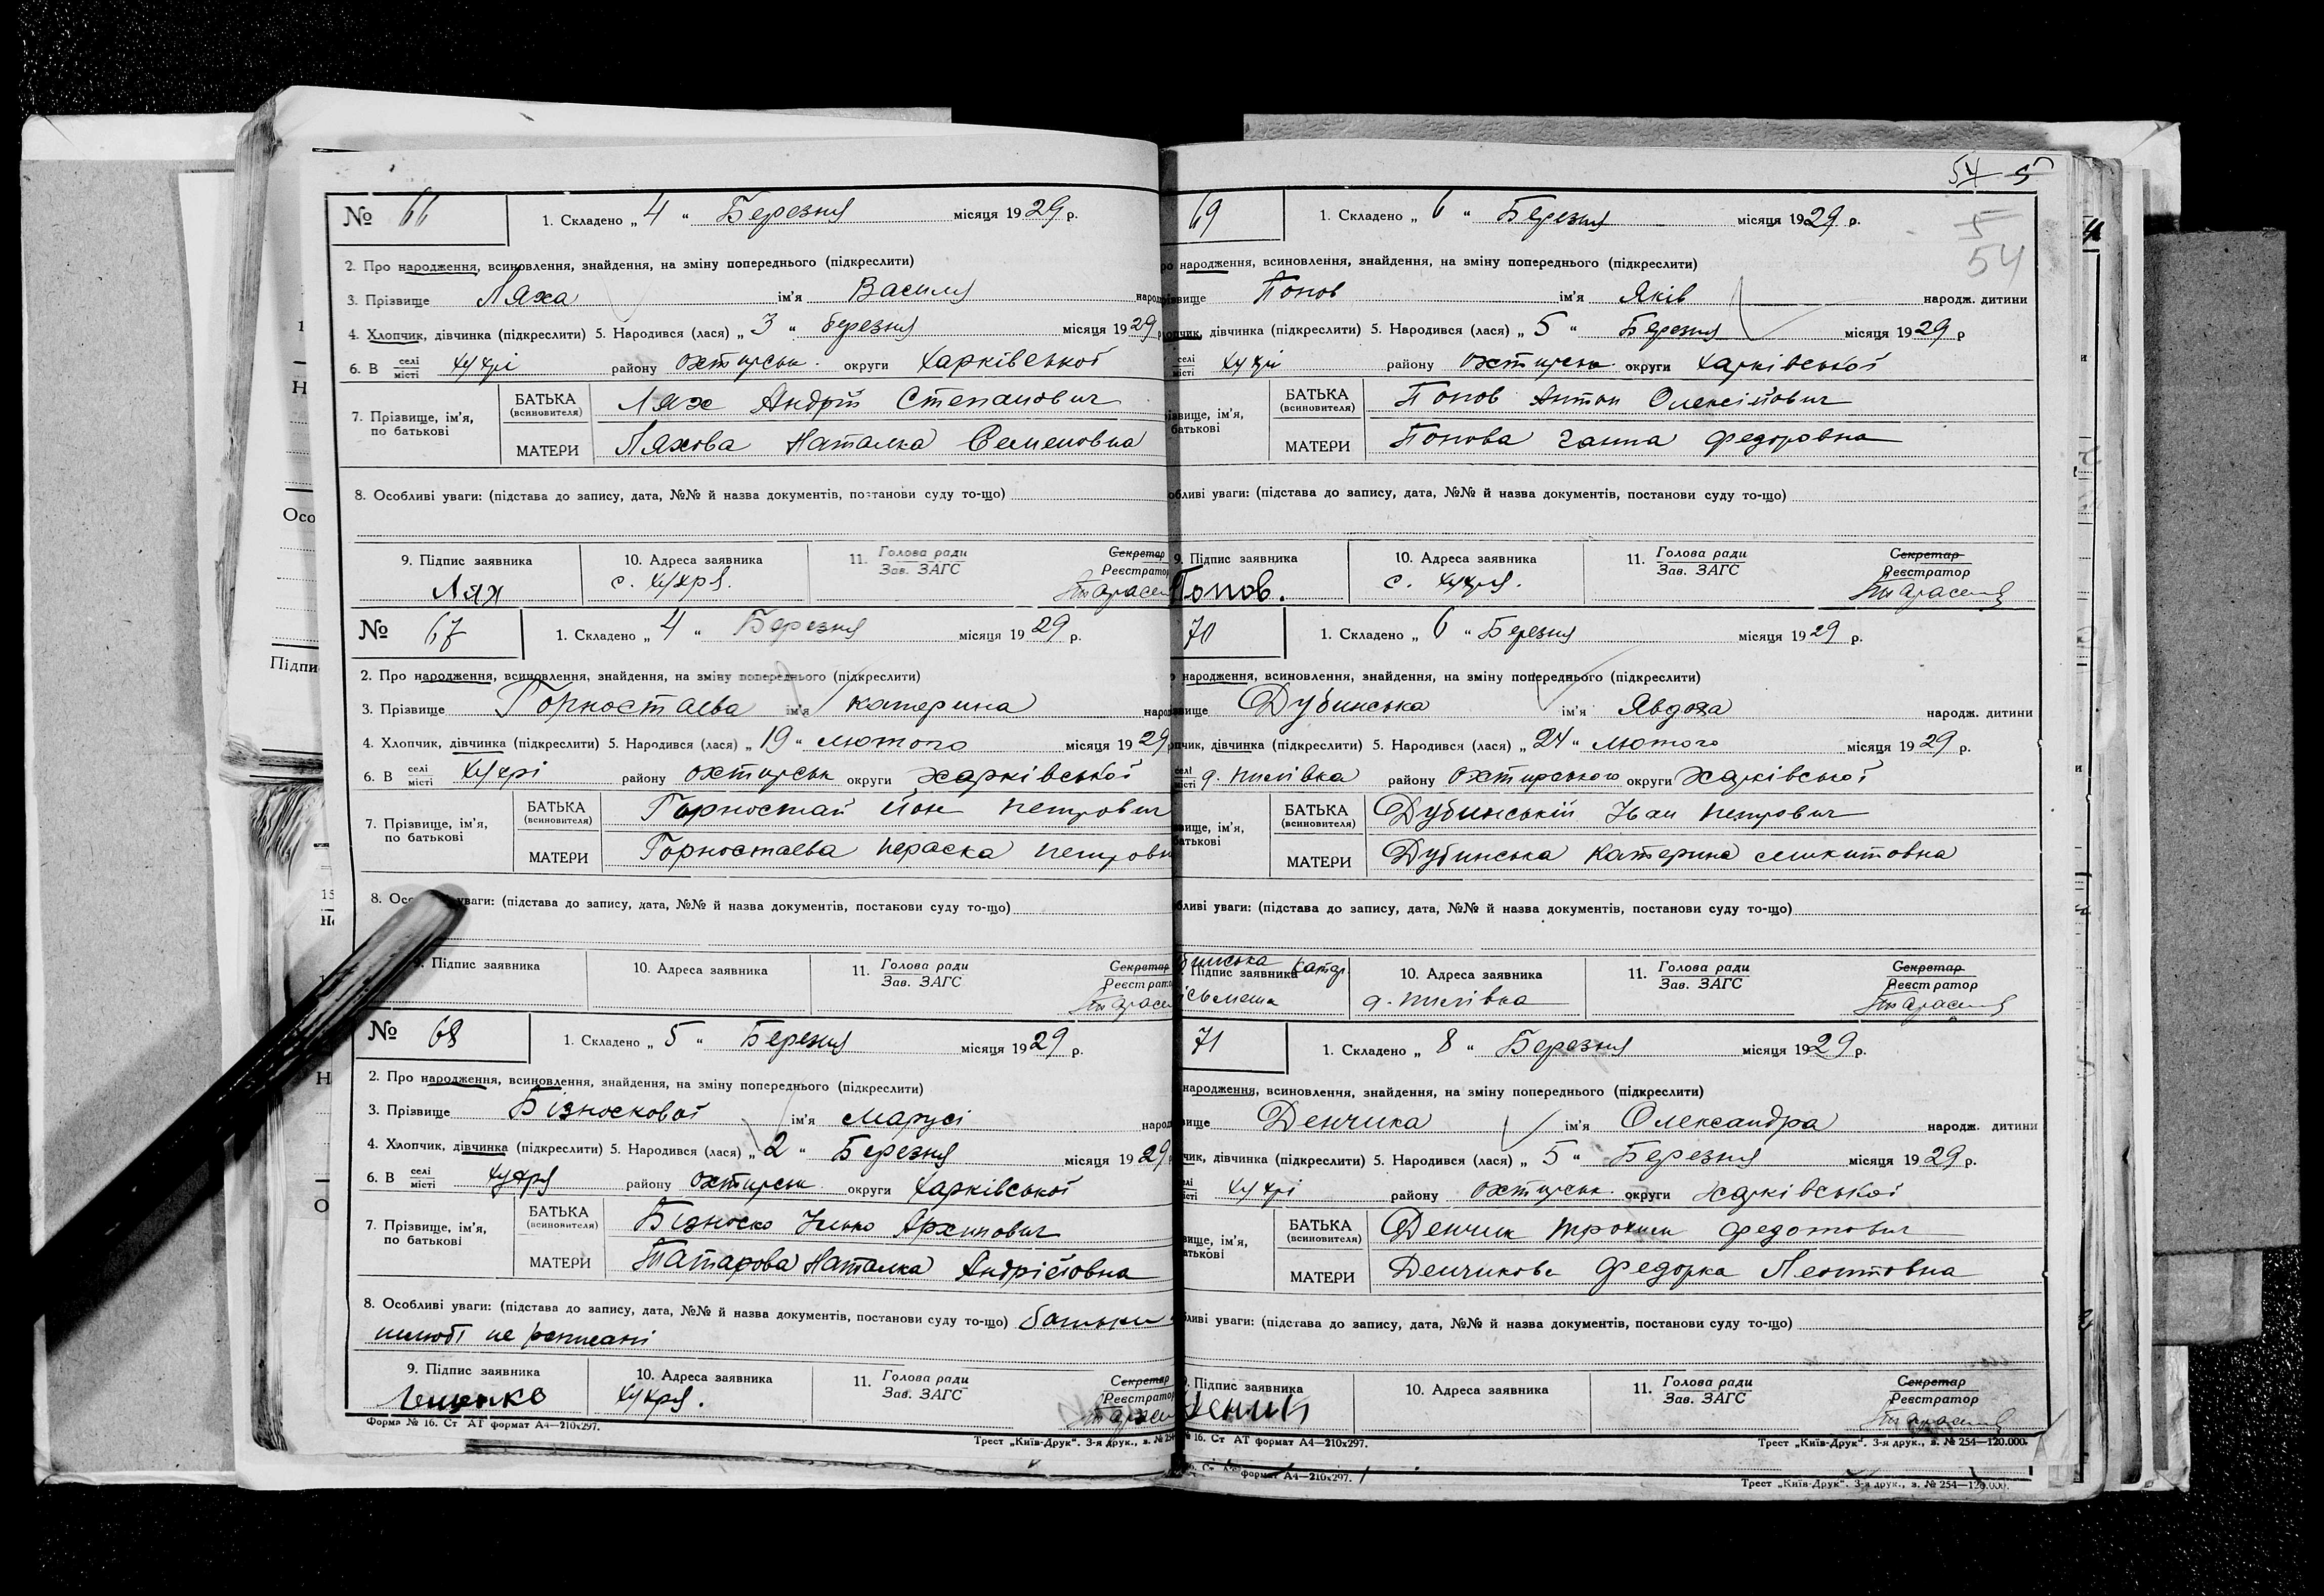 № 66 1. Складено „ 4 “ Березня місяця 1929 р.
2. Про народження, всиновлення, знайдення, на зміну попереднього (підкреслити)
3. Прізвище Ляха ім’я Василя народ
4. Хлопчик, дівчинка (підкреслити) 5. Народився (лася) „ 3 “ березня місяця 1929 р
6. В селі місті Хухрі району Охтирськ. округи Харківської
7. Прізвище, ім’я, по батькові
БАТЬКА (всиновителя) Лях Андрій Степанович
МАТЕРИ Ляхова Наталка Семеновна
8. Особливі уваги: (підстава до запису, дата, №№ й назва документів, постанови суду то-що)
9. Підпис заявника 10. Адреса заявника 11. Голова ради Зав. ЗАГС Секретар Реєстратор
Лях с. Хухря.
№ 67 1. Складено „ 4 “ Березня місяця 1929 р.
2. Про народження, всиновлення, знайдення, на зміну попереднього (підкреслити)
3. Прізвище Горностаєва ім’я Катерина народ
4. Хлопчик, дівчинка (підкреслити) 5. Народився (лася) „ 19 “ лютого місяця 1929
6. В селі місті Хухрі району Охтирськ округи Харківської
7. Прізвище, ім’я, по батькові
БАТЬКА (всиновителя) Горностай Йон Петрович
МАТЕРИ Горностаєва Параска Петровн
8. Ос уваги: (підстава до запису, дата, №№ й назва документів, постанови суду то-що)
Підпис заявника 10. Адреса заявника 11. Голова ради Зав. ЗАГС Секретар Реєстратор
№ 68 1. Складено „ 5 “ Березня місяця 1929 р.
2. Про народження, всиновлення, знайдення, на зміну попереднього (підкреслити)
3. Прізвище Бізноскової ім’я Марусі народ
4. Хлопчик, дівчинка (підкреслити) 5. Народився (лася) „ 2 “ Березня місяця 1929
6. В селі місті Хухря району Охтирськ. округи Харківської
7. Прізвище, ім’я, по батькові
БАТЬКА (всиновителя) Бізноско Ілько Архипович
МАТЕРИ Татарова Наталка Андрієвна
8. Особливі уваги: (підстава до запису, дата, №№ й назва документів, постанови суду то-що) батьки
не
9. Підпис заявника 10. Адреса заявника 11. Голова ради Зав. ЗАГС Секретар Реєстратор
Хухря.
Форма № 16. Ст АТ формат А4—210х297.
Трест „Київ-Друк“. 3-я друк., з. № 254
54 5
5
54
69 1. Складено „ 6 “ Березня місяця 1929 р.
народження, всиновлення, знайдення, на зміну попереднього (підкреслити)
Попов ім’я Яків народж. дитини
дівчинка (підкреслити) 5. Народився (лася) „ 5 “ Березня місяця 1929 р
селі місті Хухрі району Охтирськ. округи Харківської
ім’я, батькові
БАТЬКА (всиновителя) Попов Антон Олексійович
МАТЕРИ Попова Ганна Федоровна
уваги: (підстава до запису, дата, №№ й назва документів, постанови суду то-що)
9. Підпис заявника 10. Адреса заявника 11. Голова ради Зав. ЗАГС Секретар Реєстратор
Попов. с. Хухря.
70 1. Складено „ 6 “ Березня місяця 1929 р.
народження, всиновлення, знайдення, на зміну попереднього (підкреслити)
Дубинська ім’я Явдоха народж. дитини
дівчинка (підкреслити) 5. Народився (лася) „ 24 “ лютого місяця 1929 р.
селі місті району Охтирського округи Харківської
ім’я, батькові
БАТЬКА (всиновителя) Дубинський Іван Петрович
МАТЕРИ Дубинська Катерина Микитовна
уваги: (підстава до запису, дата, №№ й назва документів, постанови суду то-що)
Підпис заявника 10. Адреса заявника 11. Голова ради Зав. ЗАГС Секретар Реєстратор
71 1. Складено „ 8 “ Березня місяця 1929 р.
народження, всиновлення, знайдення, на зміну попереднього (підкреслити)
Денчика ім’я Олександра народж. дитини
дівчинка (підкреслити) 5. Народився (лася) „ 5 “ Березня місяця 1929 р.
Хухрі району Охтирськ. округи Харківської
ім’я, батькові
БАТЬКА (всиновителя) Денчик Трохим Федотович
МАТЕРИ Денчикова Федорка Леонтовна
уваги: (підстава до запису, дата, №№ й назва документів, постанови суду то-що)
Підпис заявника 10. Адреса заявника 11. Голова ради Зав. ЗАГС Секретар Реєстратор
№ 16. Ст АТ формат А4—210х297.
Трест „Київ-Друк“. 3-я друк., з. № 254—120.000.
формат А4—210х297.
Трест „Київ-Друк“. 3-я друк., з. № 254—120.000.